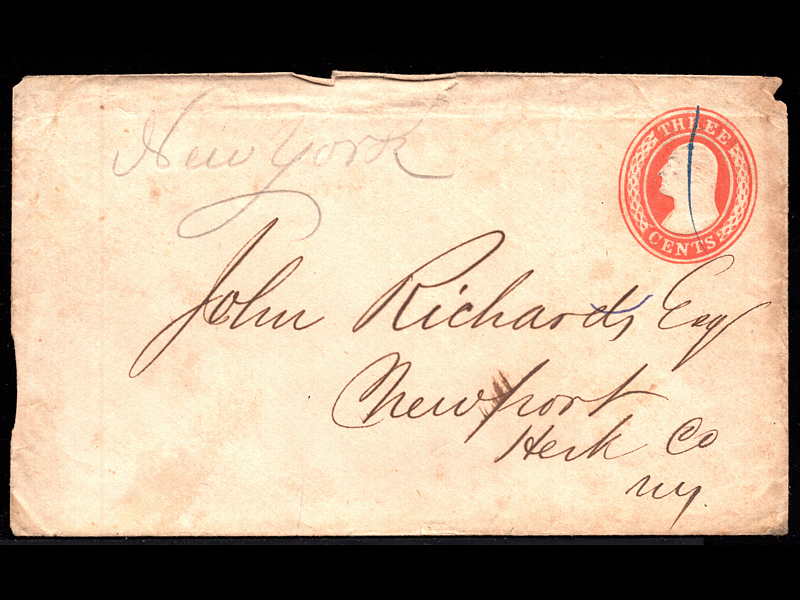 New York
THREE
CENTS
John Richards Esq
Newport
Herk Co
NY.